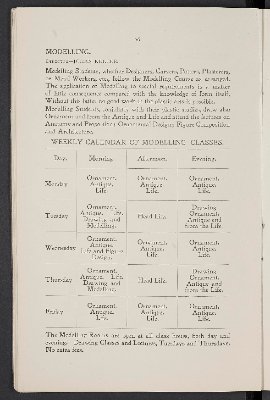 MODELLING.
Modelling Students, whether Designers, Carvers, Potters, Plasterers,
or Metal Workers, etc., follow the Modelling Course as arranged.
The application of Modelling to special requirements is a matter
of little consequence compared with the knowledge of form itself.
Without this latter no good work in the plastic arts is possible.
Modelling Students, conjointly with their plastic studies, draw also
Ornament and from the Antique and Life and attend the lectures on
Anatomy and Ornamental Design Figure Composition
and Architecture.
WEEKLY CALENDAR OF MODELLING CLASSES.
Day. Morning. Afternoon. Evening.
Monday
Ornament. Antique. Life.
Ornament. Antique. Life.
Ornament. Antique. Life.
Tuesday
Ornament. Antique. Life. Drawing and Modelling.
Head Life.
Drawing Ornament. Antique and from the Life
Wednesday
Ornament. Antique. Life and Figure Design.
Ornament. Antique. Life.
Ornament. Antique. Life.
Thursday
Ornament. Antique. Life. Drawing and Modelling.
Head Life.
Drawing Ornament. Antique and from the Life.
Friday
Ornament. Antique. Life.
Ornament. Antique. Life.
Ornament. Antique. Life.
The Modelling Rooms are open at all class hours, both day and
evening. Drawing Classes and Lectures, Tuesdays and Thursdays.
No extra fees.